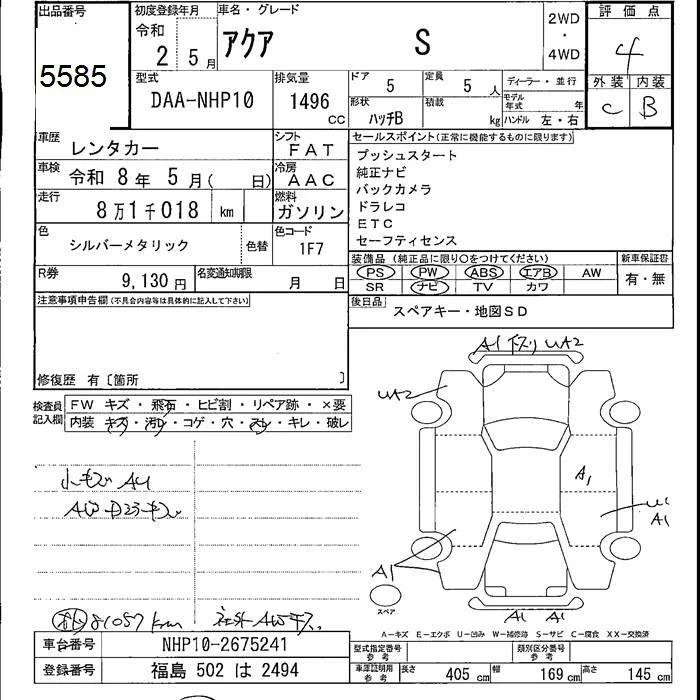 出品番号
5585
初度登録年月
令和
2年 5月
車名・グレード
アクア S
2WD
・
4WD
評価点
4
外装 内装
C B
型式
DAA-NHP10
排気量
1496
CC
ドア 5
定員 5人
ディーラー・並行
形状 ハッチB
積載 kg
モデル年式 年
ハンドル 左・右
車歴
レンタカー
シフト
FAT
車検
令和 8年 5月( 日)
冷房
AAC
走行
8万1千018 km
燃料
ガソリン
色
シルバーメタリック
色替
色コード
1F7
R券
9,130円
名変通知期限
月 日
セールスポイント(正常に機能するものに限ります)
プッシュスタート
純正ナビ
バックカメラ
ドラレコ
ETC
セーフティセンス
装備品(純正品に限り○をつけてください)
新車保証書
PS PW ABS エアB AW
SR ナビ TV カワ
有・無
後日品
スペアキー・地図SD
注意事項申告欄(不具合内容等は具体的に記入して下さい)
修復歴 有〔箇所 〕
検査員
記入欄
FW キズ・飛石・ヒビ割・リペア跡・×要
内装 キズ・汚れ・コゲ・穴・スレ・キレ・破レ
小キズ AU
81057 km
社外AWキズ
A1 下スリ UA2
UA2
A1
A1
A1
A1 A1
スペア
A-キズ E-エクボ U-凹み W-補修跡 S-サビ C-腐食 XX-交換済
車台番号
NHP10-2675241
登録番号
福島 502 は 2494
型式指定番号
参考
類別区分番号
参考
車庫証明用
参考
長さ 405 cm
幅 169 cm
高さ 145 cm